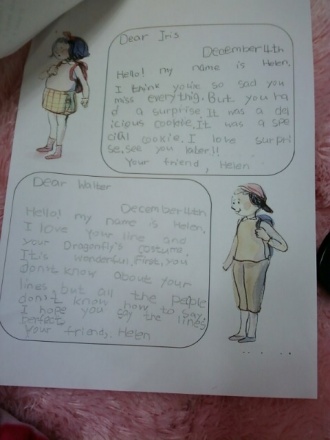 Dear Iris
December 14th
Hello! my name is Helen.
I think you're so sad you
miss everything. But you ha
d a surprise. It was a del
icious cookie. It was a spe
cial cookie. I love surpri
se. see you later!!
Your friend, Helen
Dear Walter
December 14th
Hello! my name is Helen.
I love your line and
your Dragonfly's costume.
It is wonderful. First, you
don't know about your
lines, but all the people
don't know how to say.
I hope you say the lines
perfect.
Your friends, Helen